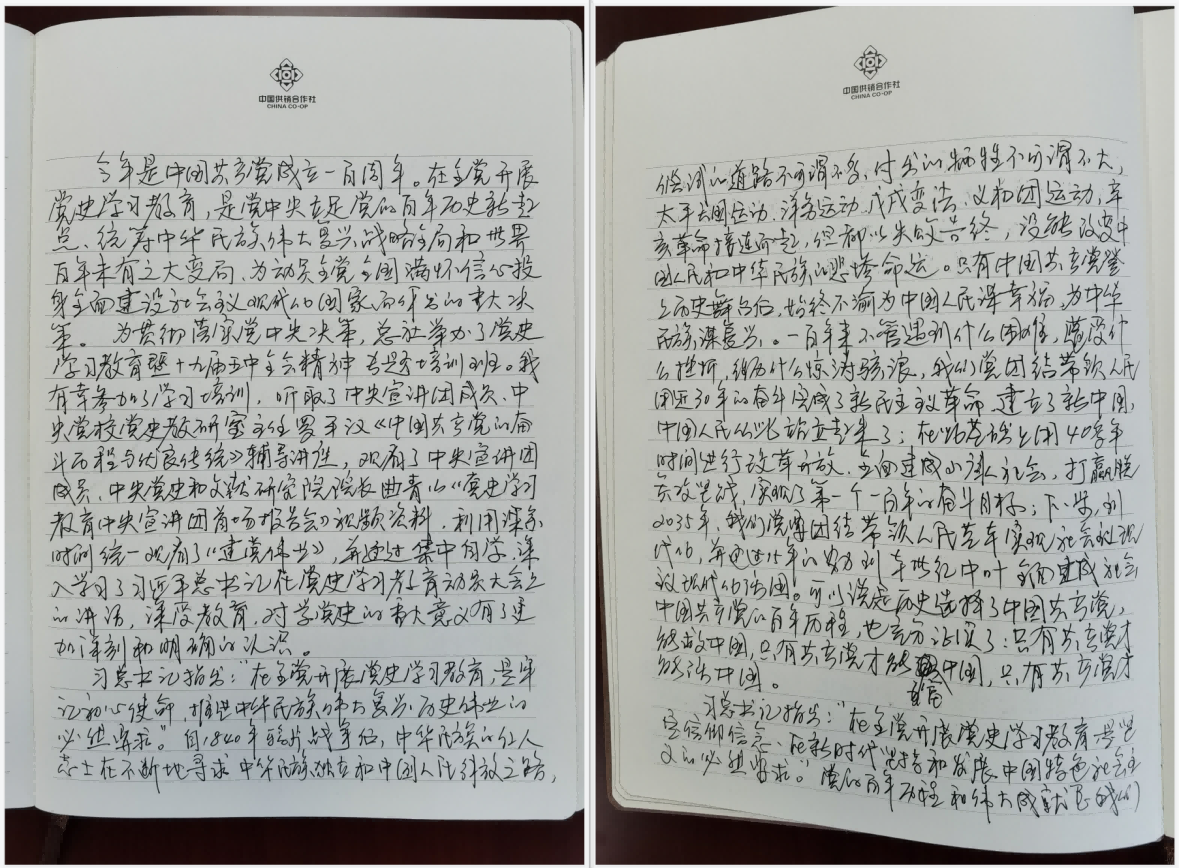 中国供销合作社
CHINA CO-OP
今年是中国共产党成立一百周年。在全党开展
党史学习教育，是党中央立足党的百年历史新起
点、统筹中华民族伟大复兴战略全局和世界
百年未有之大变局、为动员全党全国满怀信心投
身全面建设社会主义现代化国家而作出的重大决
策。为贯彻落实党中央决策，总社举办了党史
学习教育暨十九届五中全会精神专题培训班。我
有幸参加了学习培训，听取了中央宣讲团成员、中
央党校党史教研室主任罗平汉《中国共产党的奋
斗历程与优良传统》辅导讲座，观看了中央宣讲团
成员、中央党史和文献研究院院长曲青山《党史学习
教育中央宣讲团首场报告会》视频资料，利用课余
时间统一观看了《建党伟业》，并通过集中自学，深
入学习了习近平总书记在党史学习教育动员大会上
的讲话，深受教育，对学党史的重大意义有了更
加深刻和明确的认识。
习总书记指出：“在全党开展党史学习教育，是牢
记初心使命，推进中华民族伟大复兴历史伟业的
必然要求。”自1840年鸦片战争后，中华民族的仁人
志士在不断地寻求中华民族独立和中国人民解放之路，
中国供销合作社
CHINA CO-OP
尝试的道路不可谓不多，付出的牺牲不可谓不大，
太平天国运动、洋务运动、戊戌变法、义和团运动、辛
亥革命接连而起，但都以失败告终，没能改变中
国人民和中华民族的悲惨命运。只有中国共产党登
上历史舞台后，始终不渝为中国人民谋幸福，为中华
民族谋复兴。一百年来不管遇到什么困难，遭受什
么挫折，经历什么惊涛骇浪，我们党团结带领人民
用近30年的奋斗完成了新民主主义革命，建立了新中国，
中国人民从此站立起来了；在此基础上用40多年
时间进行改革开放，全面建成小康社会，打赢脱
贫攻坚战，实现了第一个一百年的奋斗目标；下一步，到
2035年，我们党要团结带领人民基本实现社会主义现
代化，并通过15年的努力到本世纪中叶全面建成社会主
义现代化强国。可以说是历史选择了中国共产党，
中国共产党的百年历程，也充分证实了：只有共产党才
能救中国，只有共产党才能中国，只有共产党才
富
能强中国。
习总书记指出：“在全党开展党史学习教育，是坚
定信仰信念、在新时代坚持和发展中国特色社会主
义的必然要求。”党的百年历程和伟大成就是我们